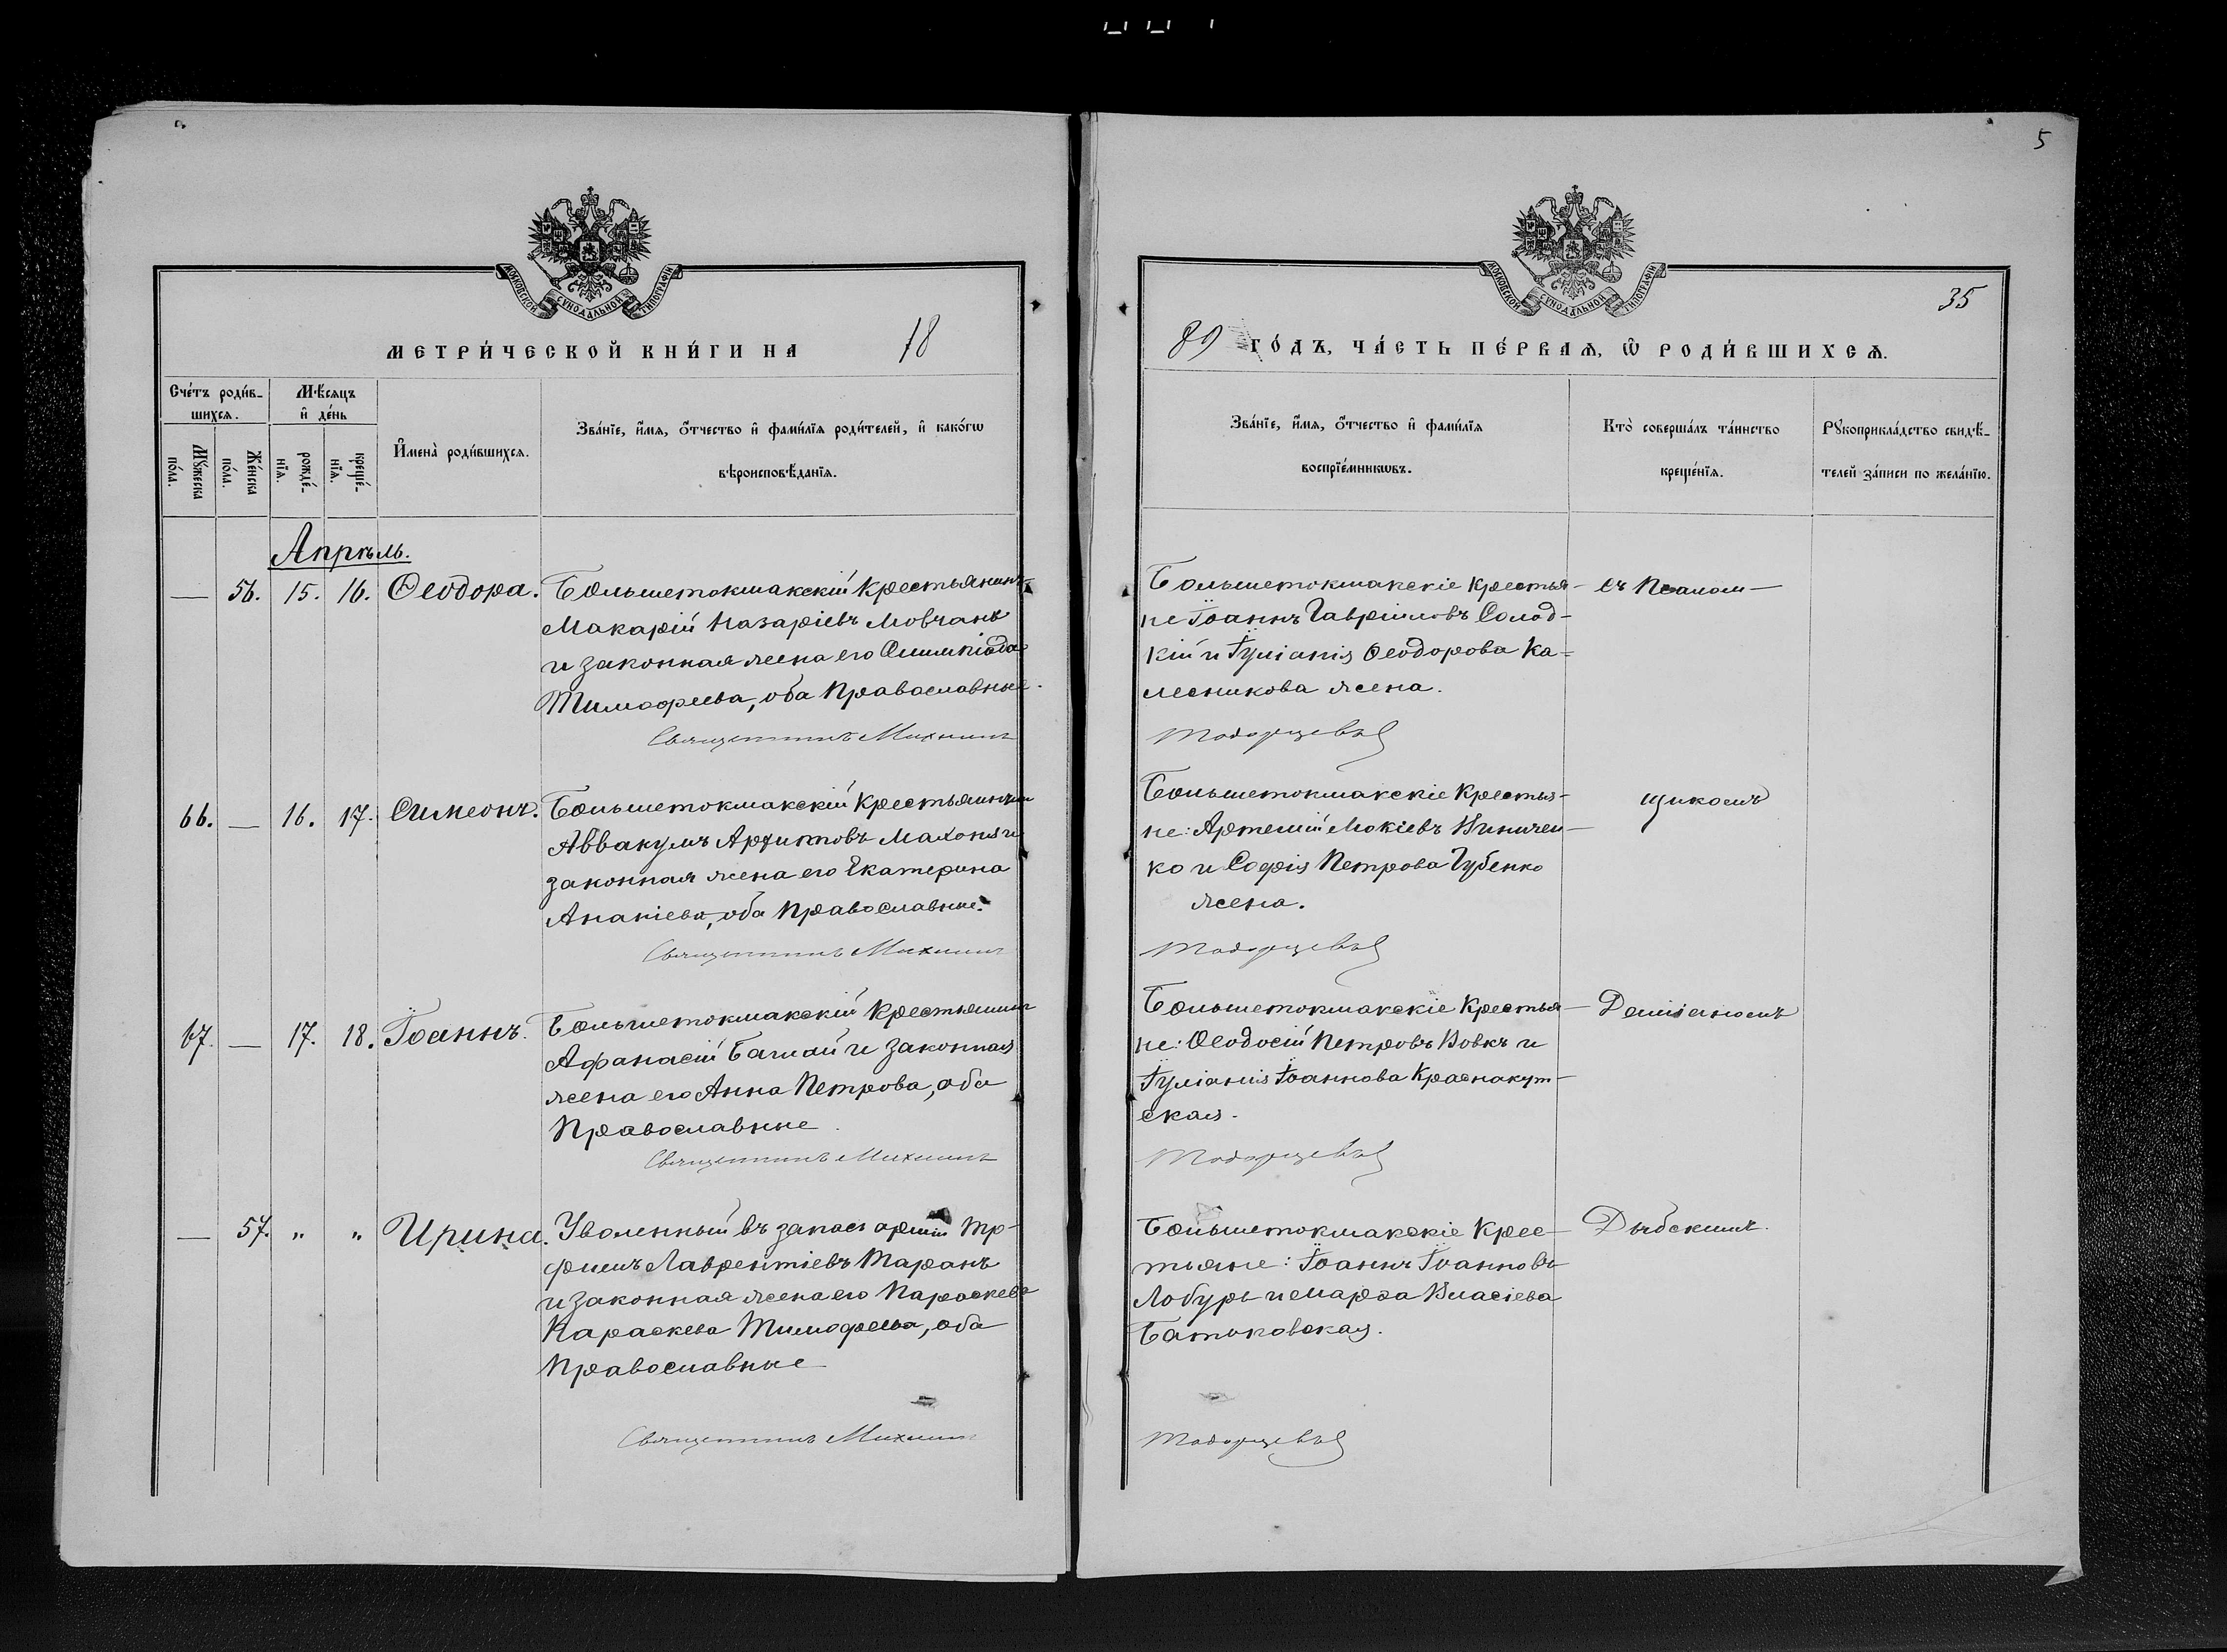 5
35
МОСКОВСКОЙ СѴНОДАЛЬНОЙ ТИПОГРАФІИ
МОСКОВСКОЙ СѴНОДАЛЬНОЙ ТИПОГРАФІИ
МЕТРИ́ЧЕСКОЙ КНИ́ГИ НА 18
89 ГО́ДЪ, ЧА́СТЬ ПЕ́РВАѦ, Ѡ҆ РОДИ́ВШИХСѦ.
Сче́тъ роди́в-
шихсѧ.
Мѣ́сѧцъ
и҆ де́нь
Мꙋ́жеска
по́ла.
Же́нска
по́ла.
рожде́-
нїѧ.
креще́-
нїѧ.
И҆мена̀ роди́вшихсѧ.
Зва́нїе, и҆́мѧ, ѻ҆́тчество и҆ фами́лїѧ роди́телей, и҆ како́гѡ
вѣроисповѣ́данїѧ.
Зва́нїе, и҆́мѧ, ѻ҆́тчество и҆ фами́лїѧ
воспрїе́мникѡвъ.
Кто̀ соверша́лъ та́инство
креще́нїѧ.
Рꙋкоприкла́дство свидѣ́-
телей за́писи по жела́нїю.
Апрѣль.
— 56. 15. 16. Ѳеодора. Большетокмакскій крестьянинъ
Макарій Назаріевъ Мовчанъ
и законная жена его Олимпіада
Тимофеева, оба Православные.
Священникъ Михаилъ
Большетокмакскіе крестья-
не Іоаннъ Гавріиловъ Солод-
кій и Іуліанія Ѳеодорова Ка-
лесникова жена.
съ Псалом-
66. — 16. 17. Симеонъ. Большетокмакскій крестьянинъ
Аввакумъ Архиповъ Махоня и
законная жена его Екатерина
Ананіева, оба Православные.
Священникъ Михаилъ
Большетокмакскіе крестья-
не: Артемій Мокіевъ Виничен-
ко и Софія Петрова Губенко
жена.
щикомъ
67. — 17. 18. Іоаннъ. Большетокмакскій крестьянинъ
Афанасій Багмай и законная
жена его Анна Петрова, оба
Православные.
Священникъ Михаилъ
Большетокмакскіе крестья-
не: Ѳеодосій Петровъ Вовкъ и
Іуліанія Іоаннова Краснокут-
ская.
Даміаномъ
— 57. " " Ирина. Уволенный въ запасъ арміи Тр-
фимъ Лаврентіевъ Таранъ
и законная жена его Параскева
Параскева Тимофеева, оба
Православные
Священникъ Михаилъ
Большетокмакскіе крес-
тьяне: Іоаннъ Іоанновъ
Лобуръ и Марѳа Власіева
Батьковская.
Дыбскимъ.